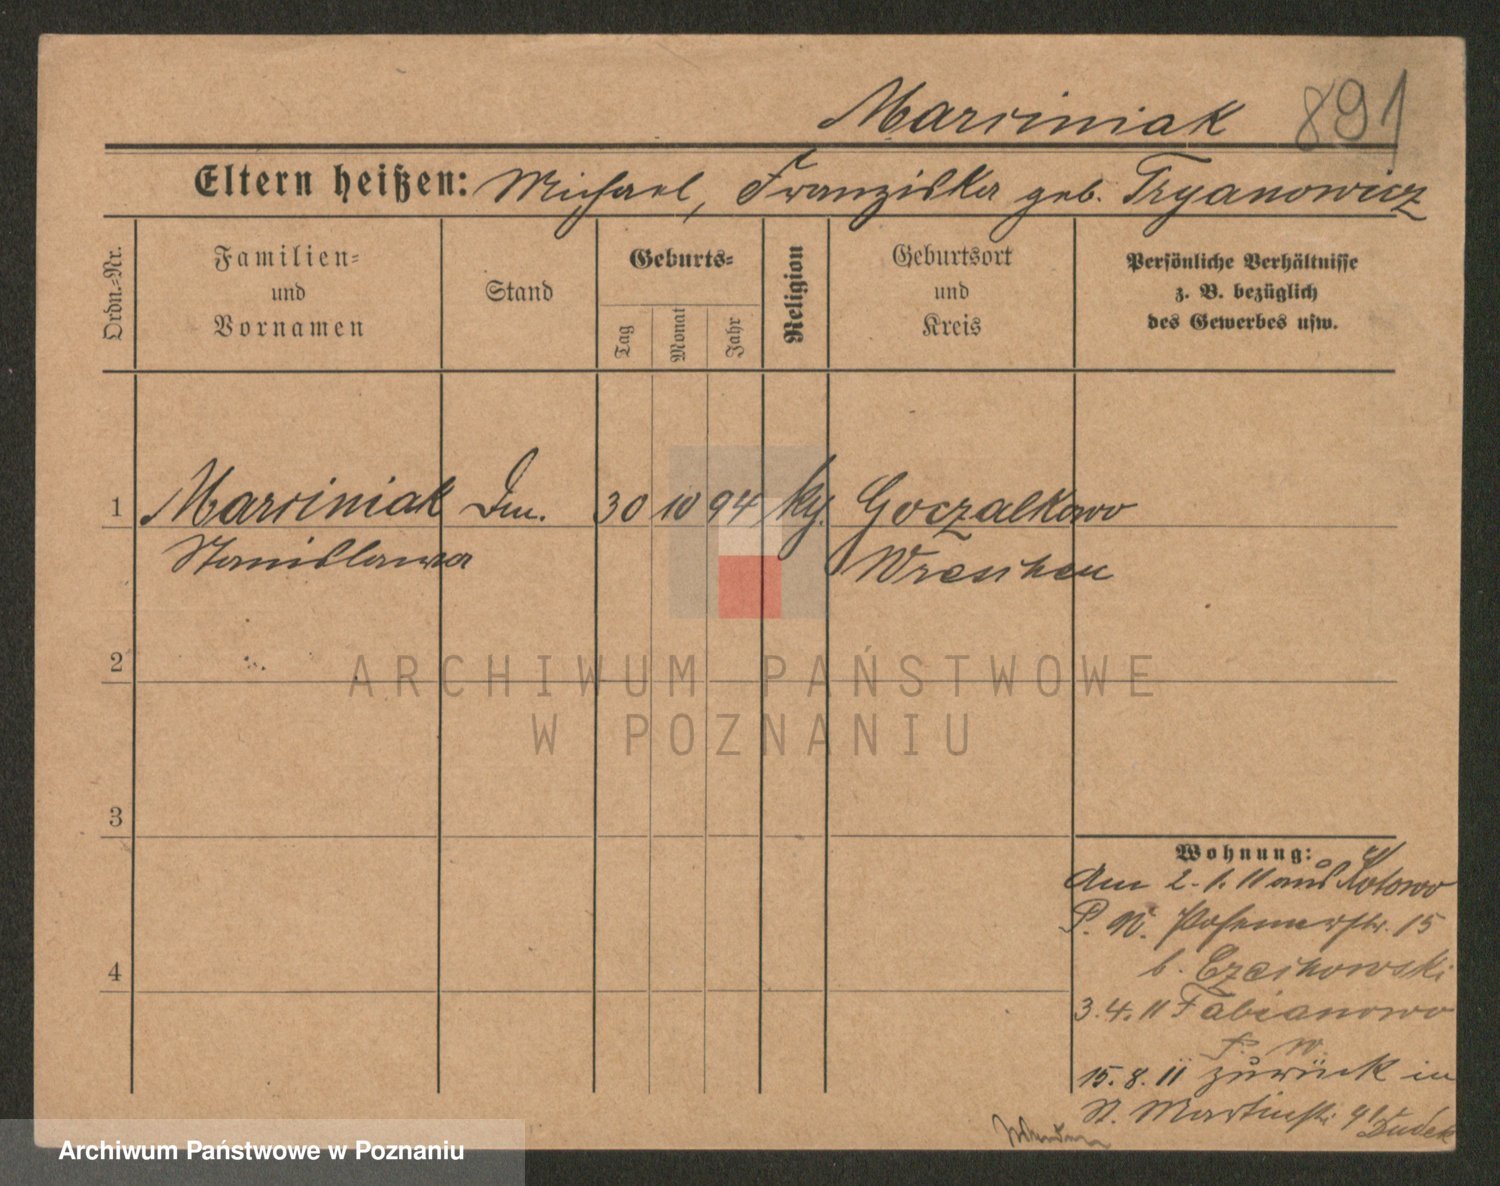 Marciniak 891
Eltern heißen: Michael, Franziska geb. Tryanowicz
Ordn.-Nr.
Familien-
und
Vornamen
Stand
Geburts-
Tag
Monat
Jahr
Religion
Geburtsort
und
Kreis
Persönliche Verhältnisse
z. B. bezüglich
des Gewerbes usw.
1 Marciniak 30 10 94 Goczalkowo
Stanislawa Wreschen
2
3
4
Wohnung:
Am 2.1.11 aus Kotowo
P. W. Posenerstr. 15
b. Czeskowski
3.4.11 Fabianowo
P. W.
15.8.11 zurück in
St. Martinstr.
Dudek
ARCHIWUM PAŃSTWOWE
W POZNANIU
Archiwum Państwowe w Poznaniu